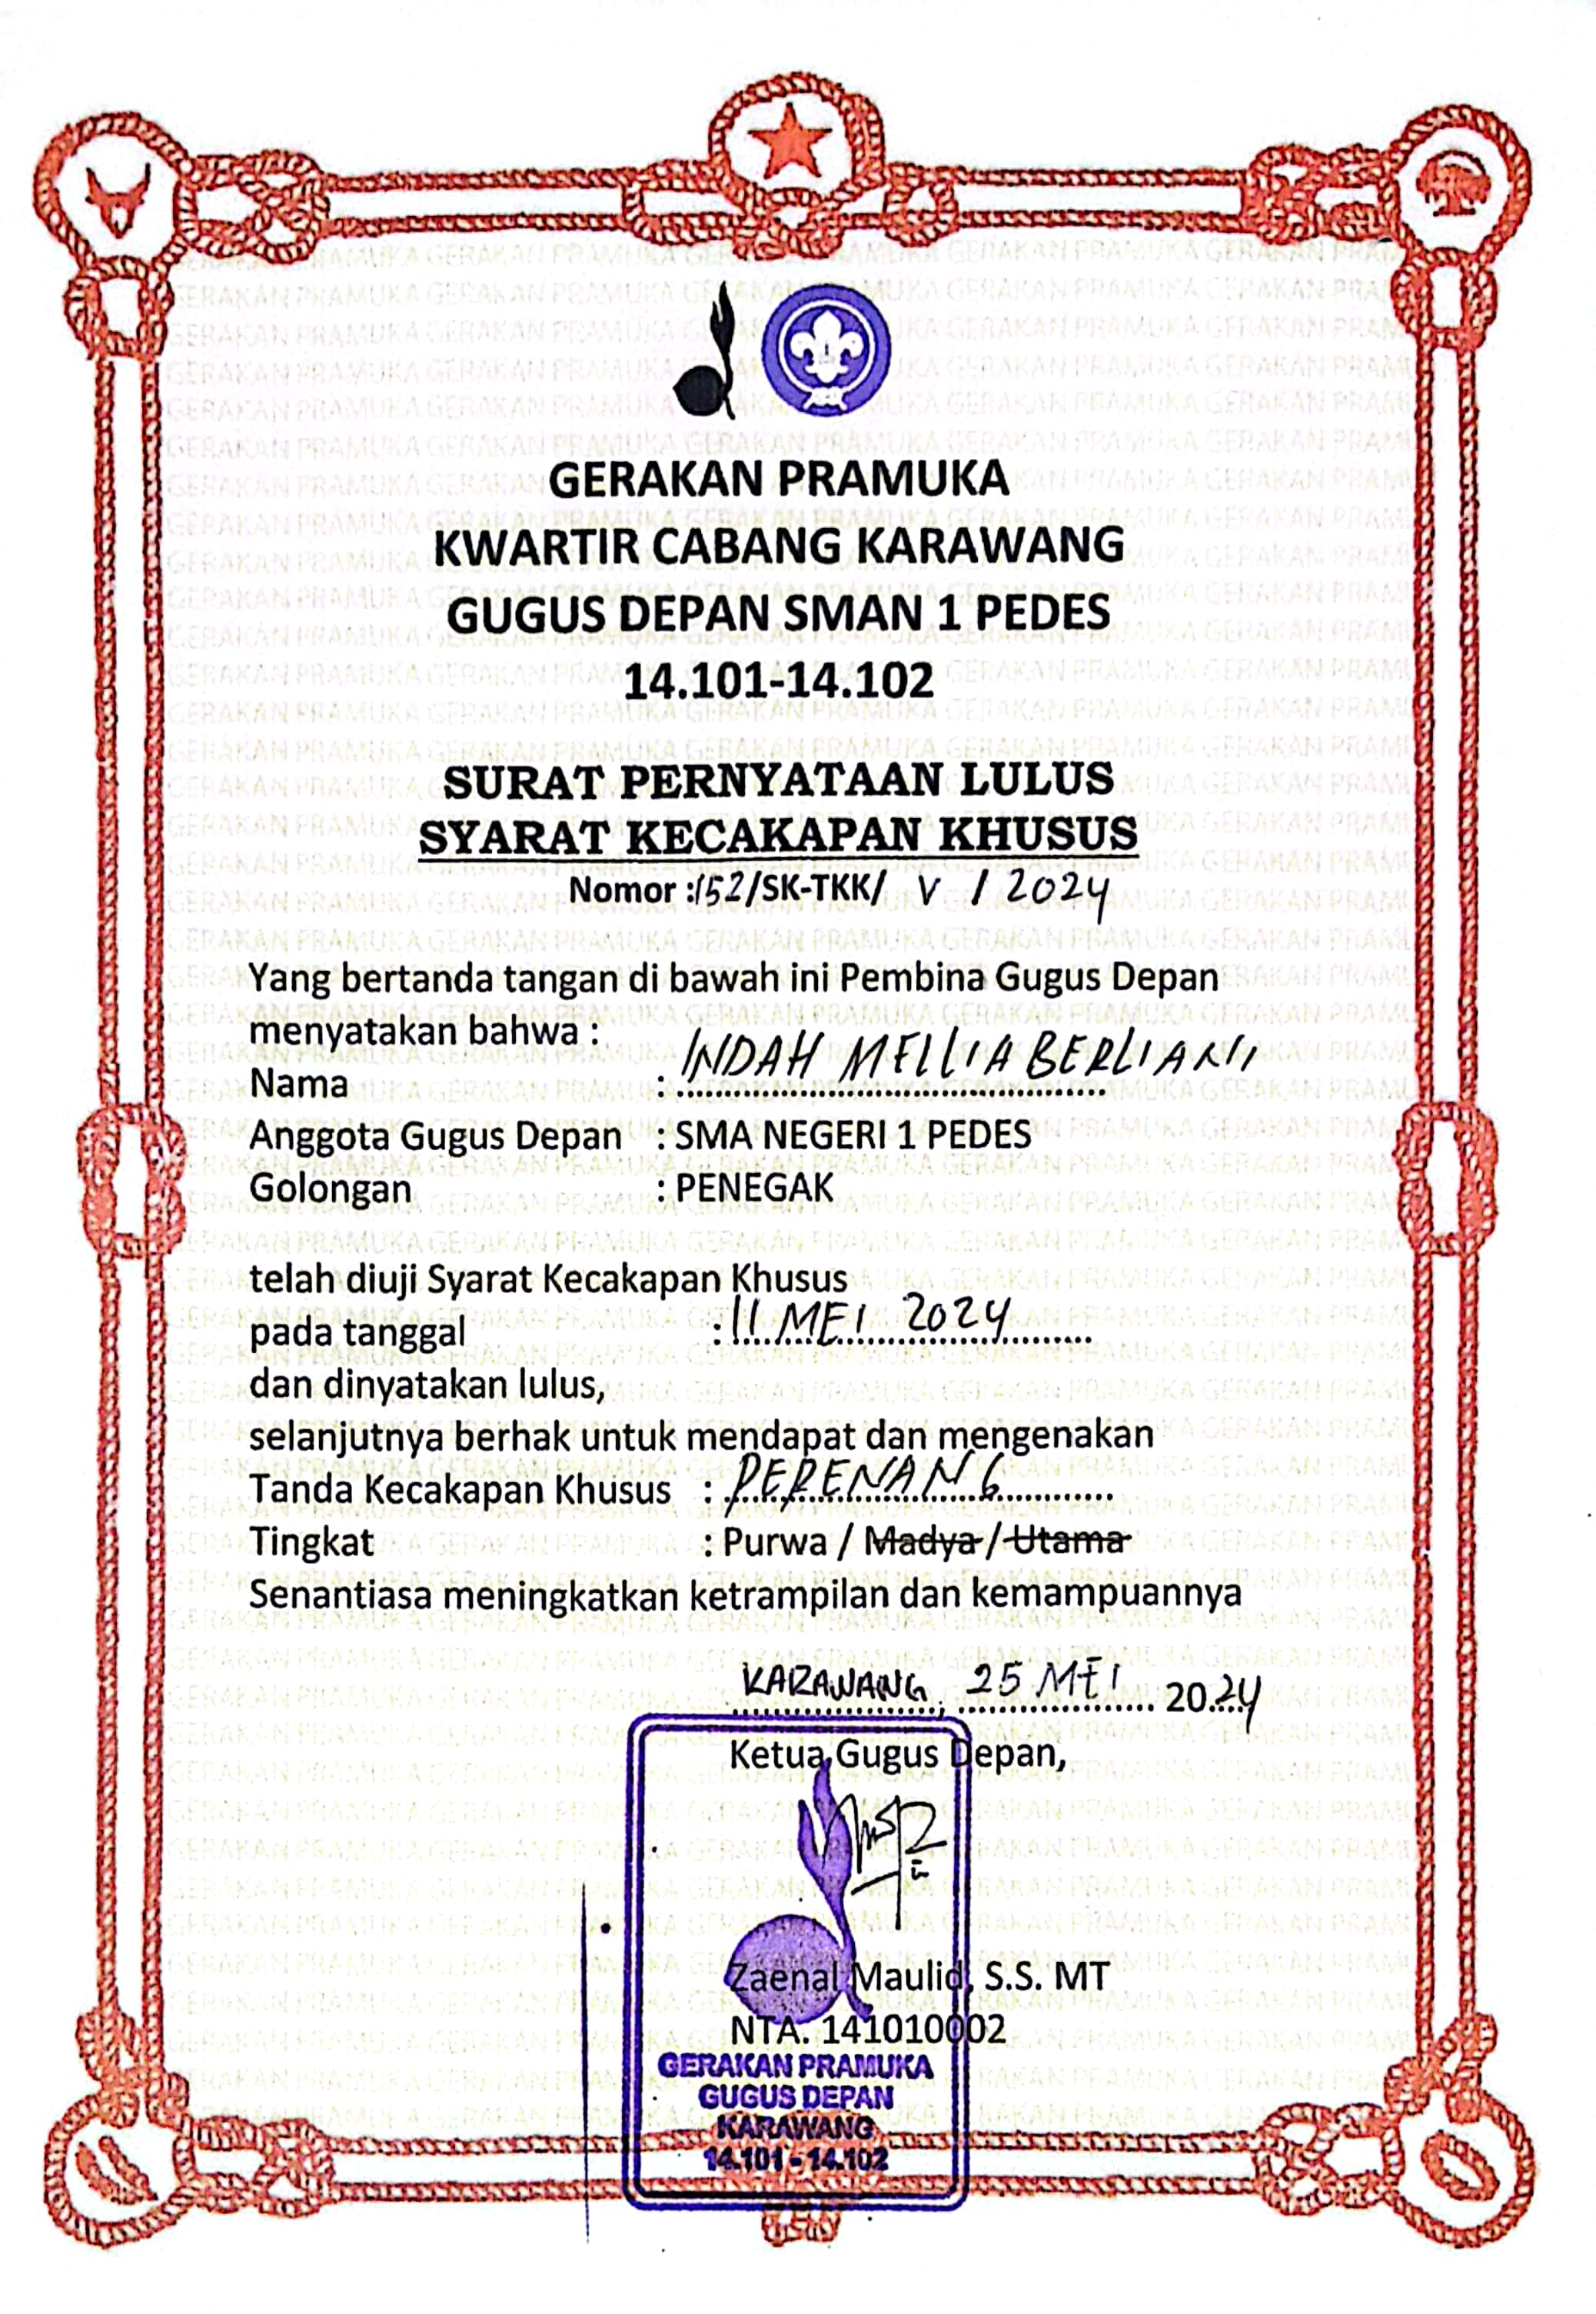 GERAKAN PRAMUKA
KWARTIR CABANG KARAWANG
GUGUS DEPAN SMAN 1 PEDES
14.101-14.102
SURAT PERNYATAAN LULUS
SYARAT KECAKAPAN KHUSUS
Nomor :152/SK-TKK/ V / 2024
Yang bertanda tangan di bawah ini Pembina Gugus Depan
menyatakan bahwa :
Nama : INDAH MELLIA BERLIANI
Anggota Gugus Depan : SMA NEGERI 1 PEDES
Golongan : PENEGAK
telah diuji Syarat Kecakapan Khusus
pada tanggal : 11 MEI 2024
dan dinyatakan lulus,
selanjutnya berhak untuk mendapat dan mengenakan
Tanda Kecakapan Khusus : PERENANG
Tingkat : Purwa / Madya / Utama
Senantiasa meningkatkan ketrampilan dan kemampuannya
KARAWANG, 25 MEI 2024
Ketua Gugus Depan,
Zaenal Maulid, S.S. MT
NTA. 141010002
GERAKAN PRAMUKA
GUGUS DEPAN
KARAWANG
14.101 - 14.102